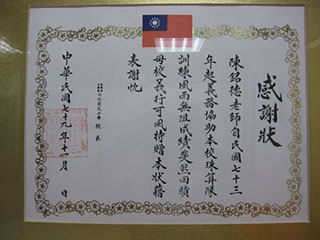 感謝狀
陳銘德老師自民國七十三
年起義務協助本校珠算隊
訓練風雨無阻成績斐然回饋
母校義行可風特贈本狀藉
表謝忱
校長
中華民國七十九年十一月 日